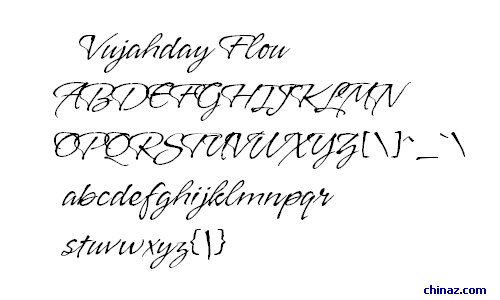 Vujahday Flou
ABDEFGHIJKLMN
OPQRSTUVWXYZ[\]^_`\
abcdefghijklmnpqr
stuvwxyz{|}
chinaz.com